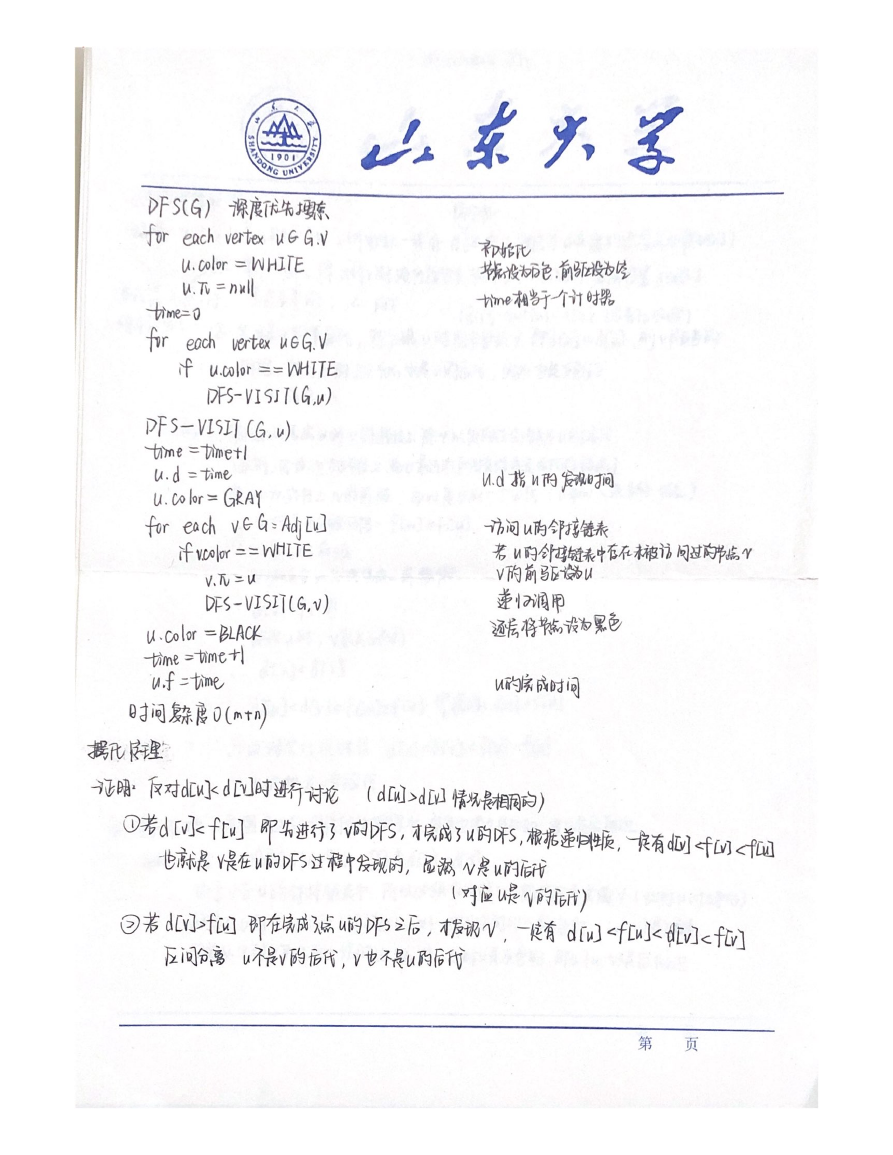 山东大学
山东大学
SHANDONG UNIVERSITY
1901
DFS(G) 深度优先搜索
for each vertex u∈G.V
u.color = WHITE
初始化
节点设为白色.前驱设为空
u.π = null
time相当于一个计时器
time=0
for each vertex u∈G.V
if u.color == WHITE
DFS-VISIT(G,u)
DFS-VISIT(G,u)
time = time+1
u.d = time
u.d 指u的发现时间
u.color = GRAY
for each v∈G:Adj[u]
访问u的邻接链表
if v.color == WHITE
若u的邻接链表中存在未被访问过的节点v
v.π = u
v的前驱设为u
DFS-VISIT(G,v)
递归调用
u.color = BLACK
逐层将节点设为黑色
time = time+1
u.f = time
u的完成时间
时间复杂度O(m+n)
括号化定理
证明: 仅对d[u]<d[v]时进行讨论 (d[u]>d[v]情况是相同的)
①若d[v]<f[u] 即先进行了v的DFS,才完成了u的DFS,根据递归性质,一定有d[v]<f[v]<f[u]
也就是v是在u的DFS过程中发现的, 显然v是u的后代
(对应u是v的后代)
②若d[v]>f[u] 即在完成了点u的DFS之后,才发现v,一定有 d[u]<f[u]<d[v]<f[v]
区间分离 u不是v的后代,v也不是u的后代
第 页